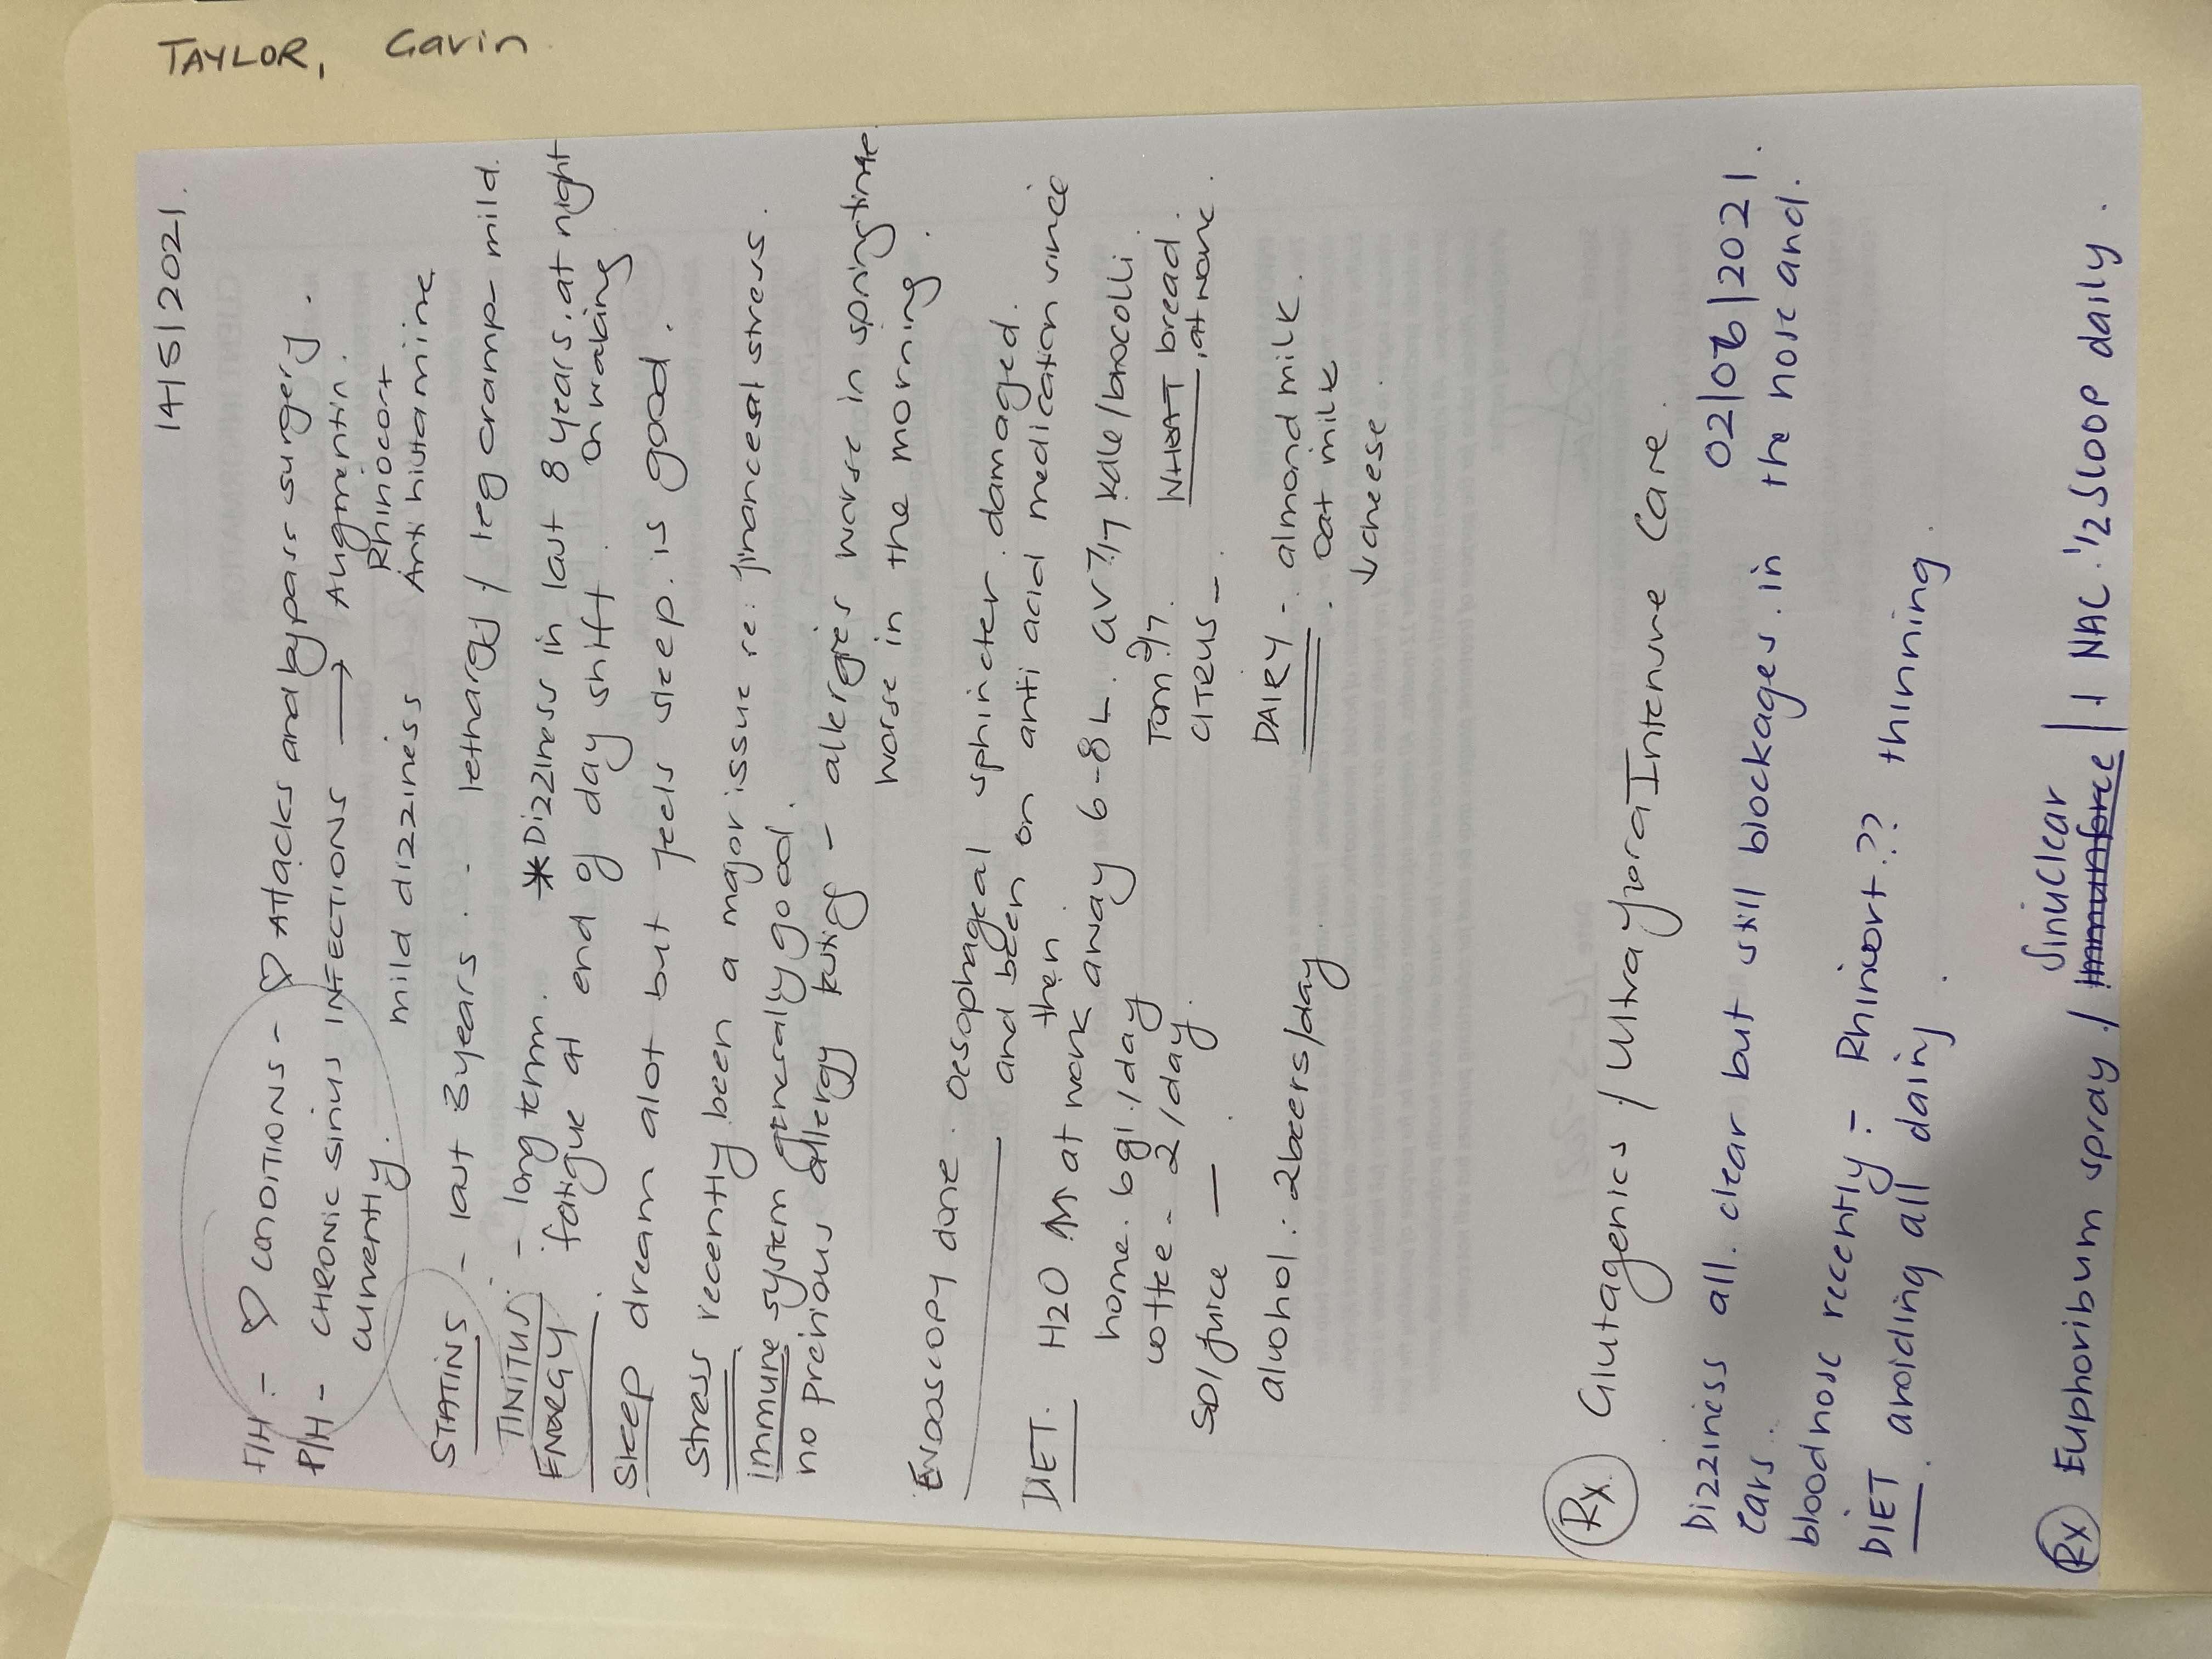 TAYLOR, Gavin
14/5/2021
F/H :- ♡ CONDITIONS - ♡ Attacks and bypass surgery.
P/H - CHRONIC sinus INFECTIONS → Augmentin.
currently.
Rhinocort
mild dizziness Anti histamine
STATINS - last 3 years. - lethargy / leg cramp - mild.
TINITUS: - long term. * Dizziness in last 8 years, at night
ENERGY fatigue at end of day shift. on waking
Sleep dream alot but feels sleep is good.
Stress recently been a major issue re: financesal stress.
immune system generally good.
no previous allergy testing - allergies worse in springtime
worse in the morning.
ENDOSCOPY done. Oesophageal sphincter damaged.
and been on anti acid medication since
then
DIET. H2O ↑↑ at work away 6-8 L. av 7/7 kale/brocolli.
home. 6gl/day Tom 2/7. WHEAT bread.
coffee - 2/day. CITRUS - , at none.
SD/juice —
DAIRY - almond milk.
alcohol: 2beers/day . oat milk
↓ cheese.
Rx Glutagenics / Ultraflora Intensive Care.
02/06/2021.
Dizziness all clear but still blockages in the nose and.
ears.
bloodnose recently = Rhinocort?? thinning.
DIET avoiding all dairy.
Sinuclear
Rx Euphoribum spray / Immunforce | 1 NAC. 1/2 SCOOP daily.